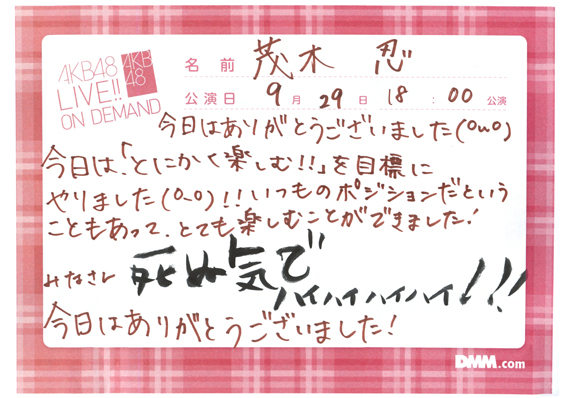 AKB48
LIVE!!
ON DEMAND
AKB
48
名前 茂木 忍
公演日 9月29日 18:00公演
今日はありがとうございました(0ω0)
今日は、「とにかく楽しむ!!」を目標に
やりました(0_0)!!いつものポジションだという
こともあって、とても楽しむことができました!
みなさん 死ぬ気で
ハイハイハイハイ!!!
今日はありがとうございました!
DMM.com